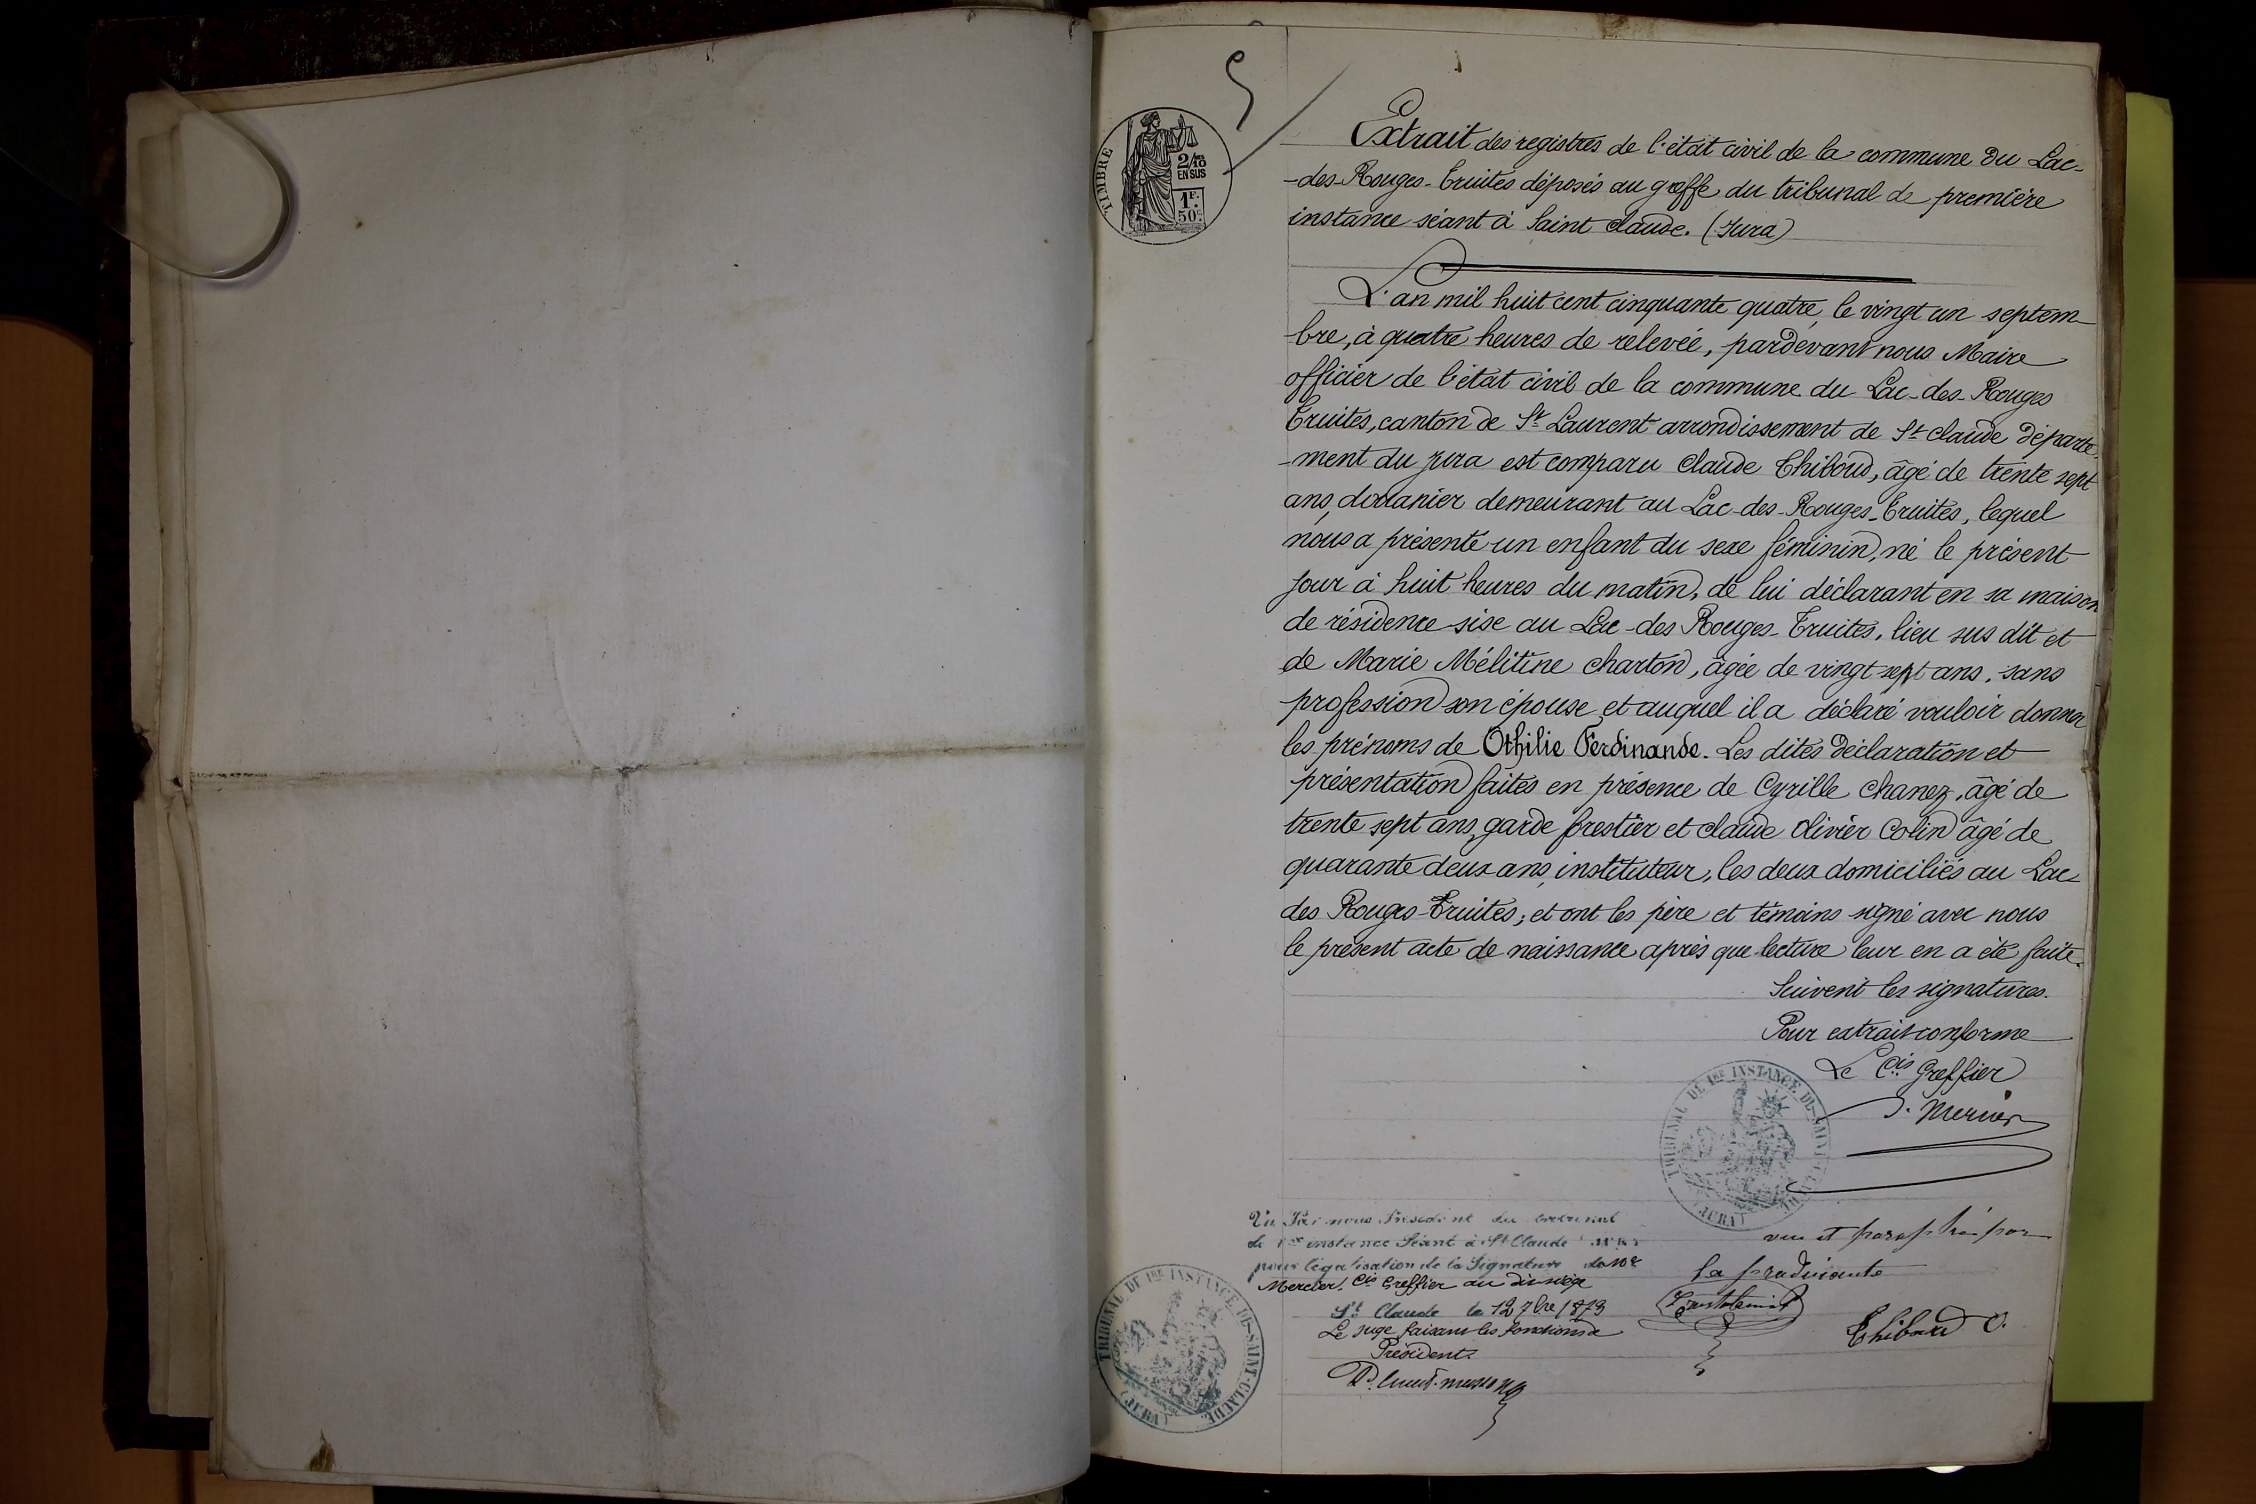 5
TIMBRE
2/10
EN SUS
1F.
50c
Extrait des registres de l'état civil de la commune du Lac-
-des-Rouges-Truites déposés au greffe du tribunal de première
instance séant à Saint Claude. (Jura)
L'an mil huit cent cinquante quatre, le vingt un septem-
bre, à quatre heures de relevée, pardevant nous Maire
officier de l'état civil de la commune du Lac-des-Rouges
Truites, canton de St Laurent arrondissement de St Claude départe-
-ment du Jura est comparu Claude Thiboud, âgé de trente sept
ans, douanier demeurant au Lac-des-Rouges-Truites, lequel
nous a présenté un enfant du sexe féminin, né le présent
jour à huit heures du matin, de lui déclarant en sa maison
de résidence sise au Lac-des Rouges-Truites, lieu sus dit et
de Marie Mélitine Charton, âgée de vingt sept ans, sans
profession son épouse et auquel il a déclaré vouloir donner
les prénoms de Othilie Ferdinande. Les dites déclaration et
présentation faites en présence de Cyrille Chanez, âgé de
trente sept ans, garde forestier et Claude Olivier Colin âgé de
quarante deux ans, instituteur, les deux domiciliés au Lac-
des Rouges-Truites; et ont les père et témoins signé avec nous
le présent acte de naissance après que lecture leur en a été faite.
Suivent les signatures.
Pour extrait conforme
Le Cis Greffier
J. Mercier
TRIBUNAL DE 1RE INSTANCE DE SAINT-CLAUDE
(JURA)
Vu Par nous Président du tribunal
de 1re instance Séant à St Claude Jura
pour légalisation de la Signature de Mr
Mercier, Cis Greffier au dit siège
St Claude le 12 7bre 1873
Le juge faisant les fonctions de
Président.
vu et paraphé par
la produisante
Thiboud O.
TRIBUNAL DE 1RE INSTANCE DE SAINT-CLAUDE
(JURA)